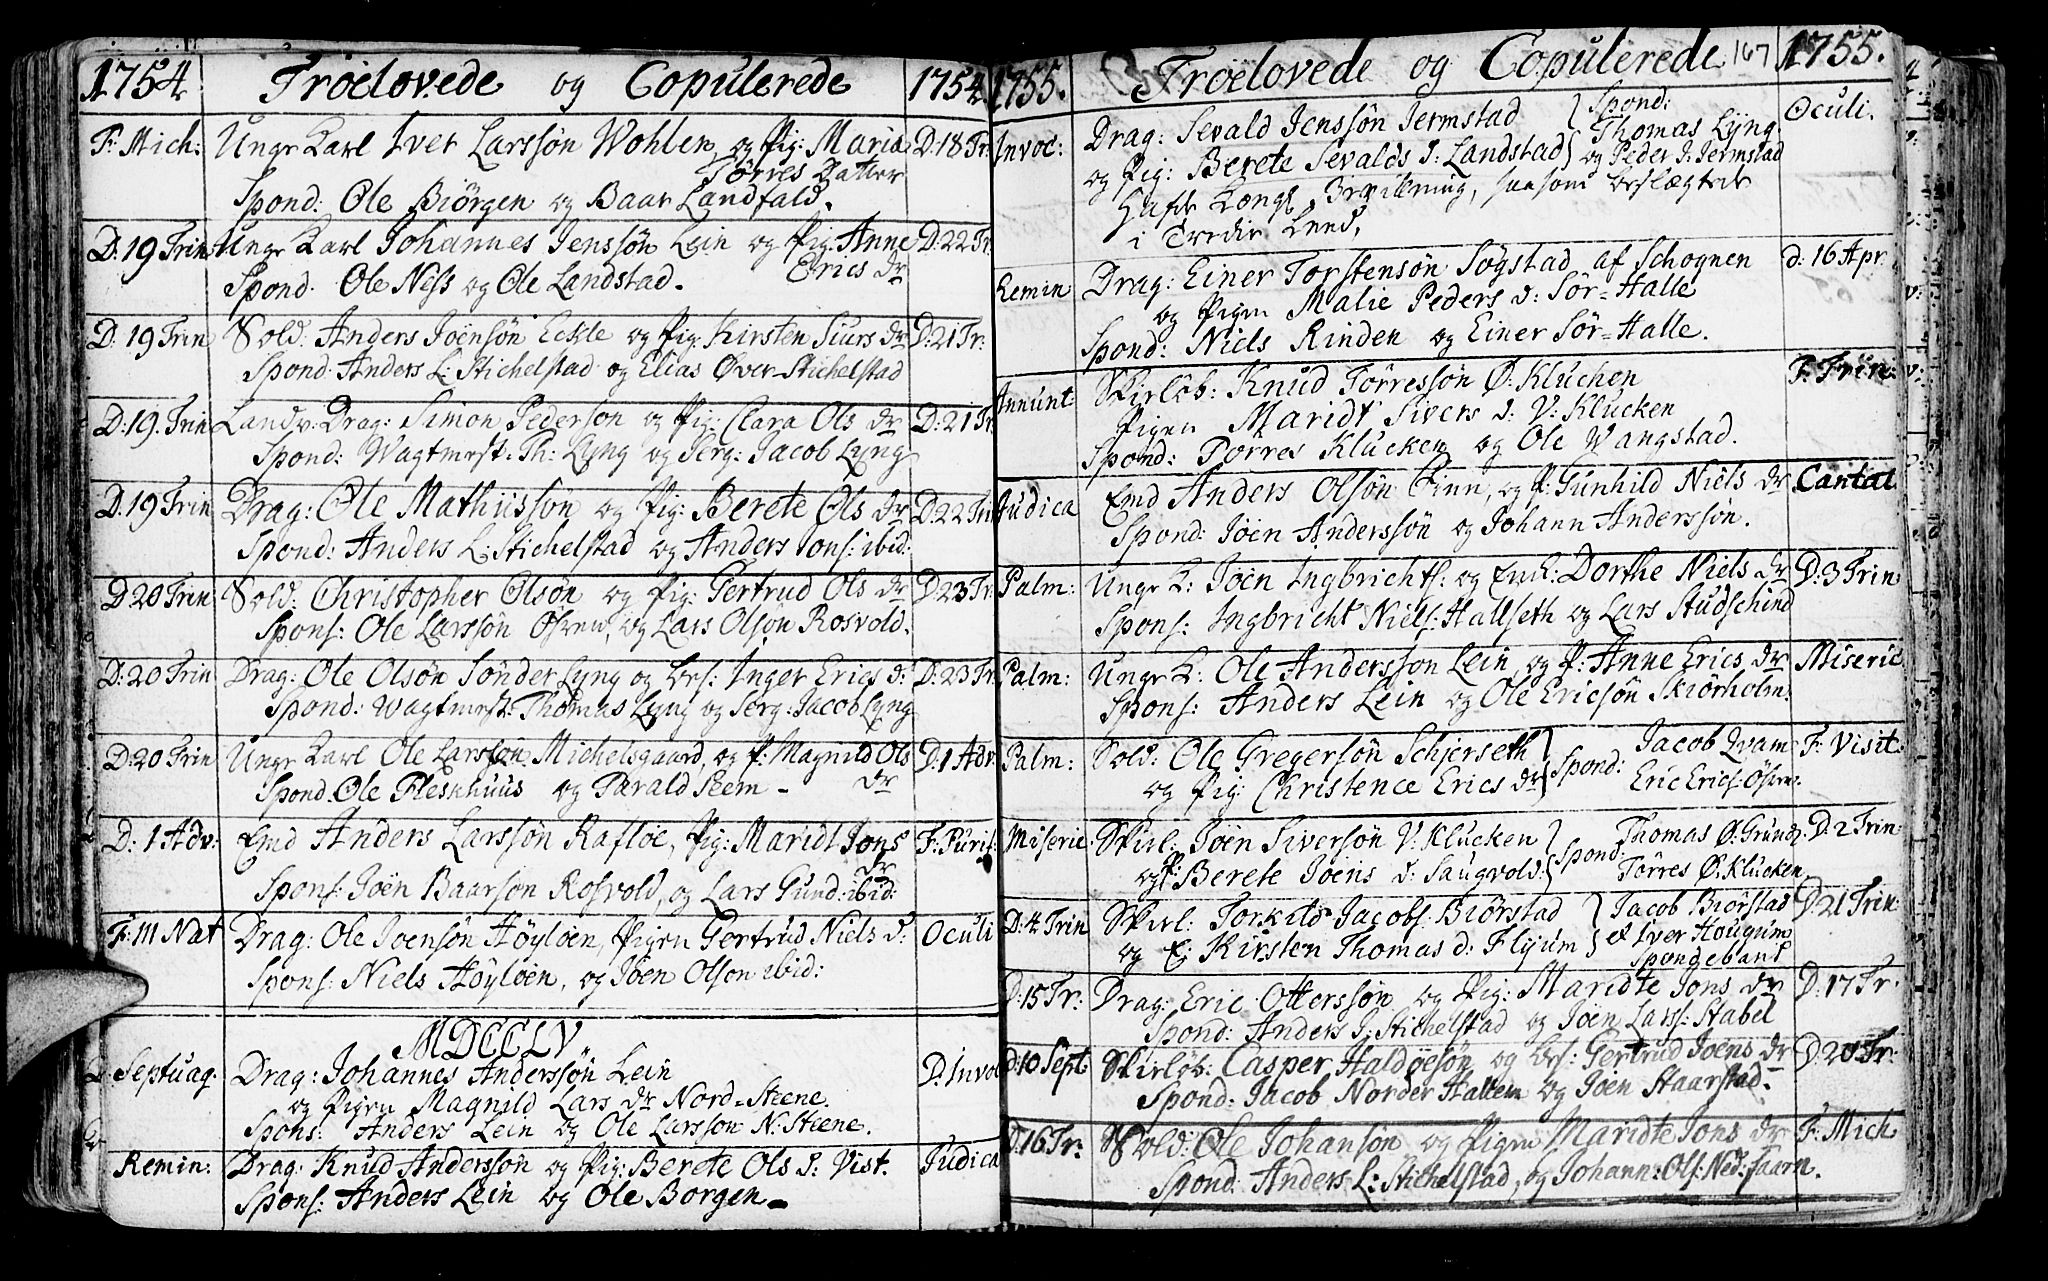 1754 Troelovede og Copulerede 1754
F: Mich: Unge Karl Iver Larssøn Wohlen og Pig: Maria D: 18 Tr:
Törres Datter
Spond: Ole Biörgen og Baar Landfald.
D: 19 Trin Unge Karl Johannes Jenssøn Lein og Pig: Anne D: 22 Tr:
Erics dr
Spond: Ole Ness og Ole Landstad.
D: 19 Trin Sold: Anders Joensøn Eckle og Pig: Kirsten Siurs dr D: 21 Tr:
Spond: Anders L: Stichelstad og Elias Øver-Stichelstad
D: 19. Trin Landv: Drag: Simon Pederson og Pig: Clara Ols dr D: 21 Tr:
Spond: Wagtmest: Th: Lyng og Serg: Jacob Lyng
D: 19 Trin Drag: Ole Mathiisson og Pig: Berete Ols dr D: 22 Trin
Spond: Anders L: Stichelstad og Anders Jons: ibid:
D 20 Trin Sold: Christopher Olsøn og Pig: Gertrud Ols dr D: 23 Tr:
Spons: Ole Larssøn Østen, og Lars Olsøn Rosvold.
D: 20 Trin Drag: Ole Olsøn Sønder Lyng og Bes: Inger Erics d: D: 23 Tr:
Spond: Wagtmest: Thomas Lyng og Serg: Jacob Lyng
D: 20 Trin Unge Karl Ole Larssøn Michelsgaard, og P: Magnild Ols D: 1 Adv:
dr
Spond. Ole Fleskhuus og Parald Seem -
D: 1 Adv: Emd Anders Larssøn Rafloe, Pig: Maridt Jons F: Purif:
dr
Spons: Joen Baarson Rosvold, og Lars Gund: ibid:
F: III Nat Drag: Ole Joensøn Høyloen, Pigen Gertrud Niels d: Oculi
Spons: Niels Høyloen, og Joen Olson ibid:
MDCCLV
Septuag. Drag: Johannes Anderssøn Lein D: Invoc
og Pigen Magnild Lars dr Nord=Steene.
Spons: Anders Lein og Ole Larsson N: Steene.
Remin: Drag: Knud Anderssøn og Pig: Berete Ols d: Vist. Judica
Spons: Anders Lein og Ole Borgen -
1755. Troelovede og Copulerede 167 1755.
Invoc: Drag: Sevald Jenssøn Jermstad Spond: Oculi.
og Pig: Berete Sevalds d: Landstad Thomas Lyng og Peder J: Jermstad
Hafde Kongl. Bevilling, saasom beslægtede
i Tredie Leed,
Remin Drag: Einer Torstensøn Sogstad af Schognen d: 16 Apr:
og Pigen Malie Peders d: Sör=Halle
Spond: Niels Rinden og Einer Sör=Halle.
Annunt: Skirløb: Knud Torressøn Ø: Klucken F: Trin:
Pigen Maridt Sivers d: V: Klucken
Spond: Porres Klucken og Ole Wangstad.
Judica Emd Anders Olsøn Finn, og P: Gunhild Niels dr Cantat
Spond: Joen Anderssøn og Johann Anderssøn.
Palm: Unge K: Joen Ingbrichts: og Enck: Dorthe Niels dr D: 3 Trin
Spons: Ingbricht Niels: Hallseth og Lars Studschind
Palm: Unge K: Ole Andersson Lein, og P: Anne Erics dr Miseric.
Spons: Anders Lein og Ole Ericsøn Skiörholm.
Palm: Sold: Ole Gregersøn Schjerseth Jacob Qvam F: Visit:
og Pig: Christence Erics dr Spond: Eric Erics: Østen.
Miseric. Skirl: Joen Siversøn V: Klucken Thomas Ø: Grund: D: 2 Trin:
og P: Berete Joens d: Saugvold: Spond: Törres Ø: Klucken
D: 4 Trin Skirl: Torkild Jacobs: Biörstad Jacob Biörstad D: 21 Trin:
og E: Kirsten Thomas d: Flyum et Iver Hougum
Spondebant
D: 15 Tr: Drag: Eric Ottersson og Pig: Maridte Jons dr D: 17 Tr.
Spond: Anders L: Stichelstad og Joen Lars: Stabel
D: 10 Sept: Skirløb: Casper Haldoesøn og Bes: Gertrud Joens dr D: 20 Tr:
Spond: Jacob Norder Hallem og Joen Staarstad.
D: 16 Tr: Sold: Ole Johansøn og Pigen Maridte Jons dr F: Mich
Spond: Anders L: Stichelstad, og Johann: Ols: Ned: Faarn.